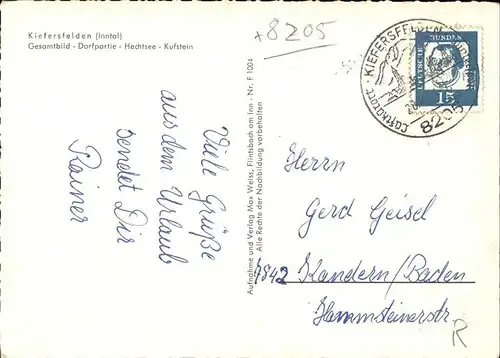 Kiefersfelden (Inntal)
Gesamtbild - Dorfpartie - Hechtsee - Kufstein
+8205
KIEFERSFELDEN
Luftkurort
8205
DEUTSCHE
BUNDES
15
Aufnahme und Verlag Max Weiss, Flintsbach am Inn - Nr. F 1004
Alle Rechte der Nachbildung vorbehalten
Viele Grüße
aus dem Urlaub
sendet Dir
Rainer
Herrn
Gerd Geisel
7842 Kandern/Baden
Hammsteinerstr.
R